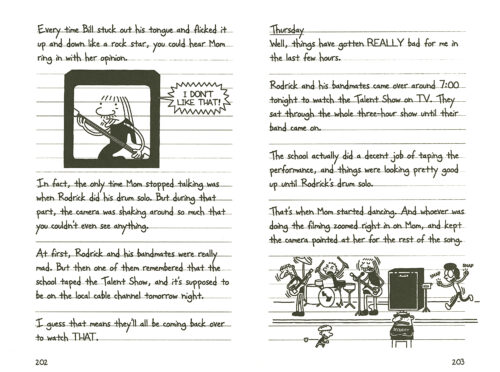 Every time Bill stuck out his tongue and flicked it
up and down like a rock star, you could hear Mom
ring in with her opinion.
I DON'T
LIKE THAT!
In fact, the only time Mom stopped talking was
when Rodrick did his drum solo. But during that
part, the camera was shaking around so much that
you couldn't even see anything.
At first, Rodrick and his bandmates were really
mad. But then one of them remembered that the
school taped the Talent Show, and it's supposed to
be on the local cable channel tomorrow night.
I guess that means they'll all be coming back over
to watch THAT.
202
Thursday
Well, things have gotten REALLY bad for me in
the last few hours.
Rodrick and his bandmates came over around 7:00
tonight to watch the Talent Show on TV. They
sat through the whole three-hour show until their
band came on.
The school actually did a decent job of taping the
performance, and things were looking pretty good
up until Rodrick's drum solo.
That's when Mom started dancing. And whoever was
doing the filming zoomed right in on Mom, and kept
the camera pointed at her for the rest of the song.
SNAP
SNAP
203